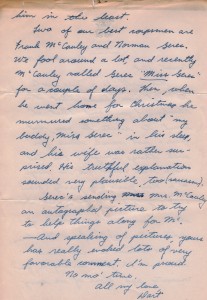 him in the least.
Two of our best wopsmen are
Frank McCauley and Norman Seres.
We fool around a lot and recently
McCauley called Seres "Miss Seres"
for a couple of days. Then, when
he went home for Christmas he
murmured something about "my
buddy, Miss Seres" in his sleep
and his wife was rather sur-
prised. His truthful explanation
sounded very plausible, too
Seres's sending Mrs. McCauley
an autographed picture to try
to help things along for Mc.
And speaking of pictures, yours
has really evoked lots of very
favorable comment. I'm proud.
No mo' time,
All my love,